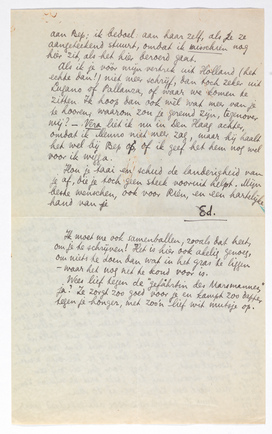 aan Bep; ik bedoel: aan haar zelf, als je ze
aangeteekend stuurt, omdat ik misschien nog
hier zit, als het hier verkeerd gaat.
Als ik je vóór mijn vertrek uit Holland (het
echte dan!) niet meer schrijf, dan toch zeker uit
Lugano of Pallanza, of waar we komen te
zitten. Ik hoop dan ook wel wat meer van je
te hooren; waarom zou je geremd zijn, tegenover
mij? — Vera liet ik nu in Den Haag achter,
omdat ik Menno niet meer zag, maar hij haalt
het wel bij Bep of ik geef het hem nog wel
voor ik wegga.
Hou je taai en schud de landerigheid van
je af, die je toch geen steek vooruit helpt. Mijn
beste wenschen, ook voor Rien, en een hartelijke
hand van je
Ed.
Ik moet me ook samenballen, zooals dat heet,
om je te schrijven! Het is hier ook akelig genoeg,
om niets te doen dan wat in het gras te liggen
— waar het nog net te koud voor is.
Wees lief tegen de "gefährtin des Marsmannes",
ja? Ze zorgt zoo goed voor je en kampt zoo dapper
tegen je honger, met zoo'n lief wit mutsje op.